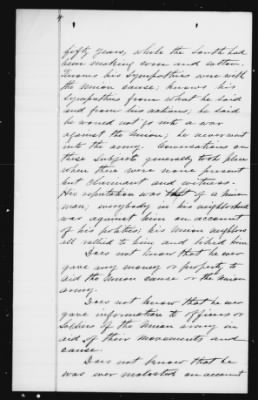 4
fifty years, while the South had
been making corn and cotton.
Knows his sympathies were with
the Union cause; knows his
sympathies from what he said
and from his actions; he said
he would not go into a war
against the Union; he never went
into the army. Conversations on
these subjects generally took place
when there were none present
but claimant and witness.
His reputation was that of a Union
man; everybody in his neighborhood
was against him on account
of his politics; his Union neighbors
all talked to him and liked him.
Does not know that he ever
gave any money or property to
aid the Union cause or the Union
army.
Does not know that he ever
gave information to officers or
soldiers of the Union army in
aid of their movements and
cause.
Does not know that he
was ever molested on account